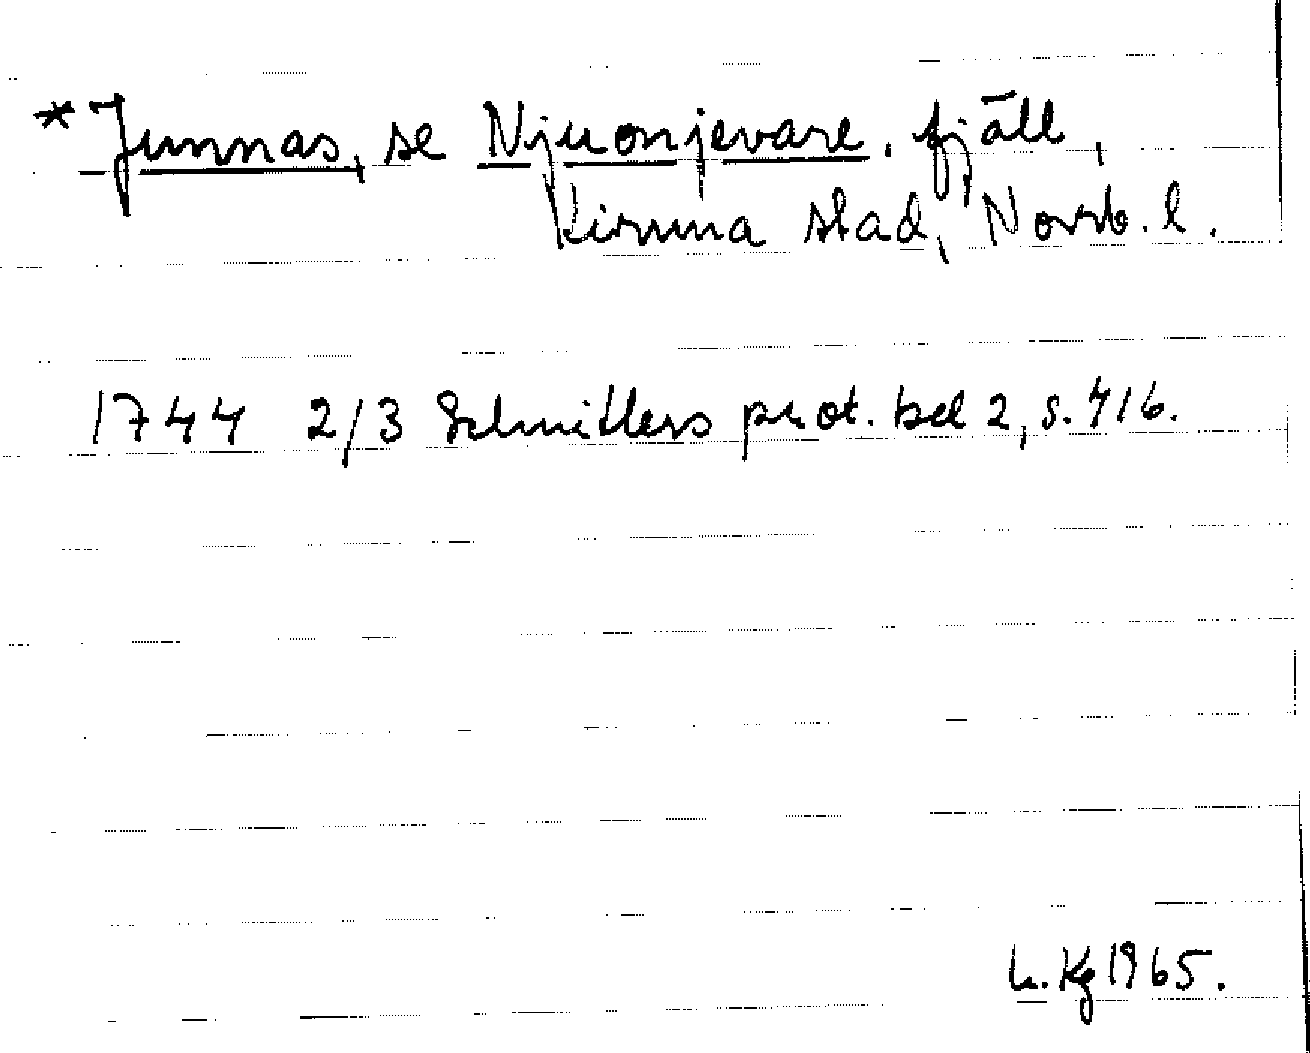 * Junnas, se Njuonjevare, fjäll,
Kiruna stad, Norrb. l.
1744 2/3 Schnitlers prot. bd 2, s. 416.
L. Kg 1965.